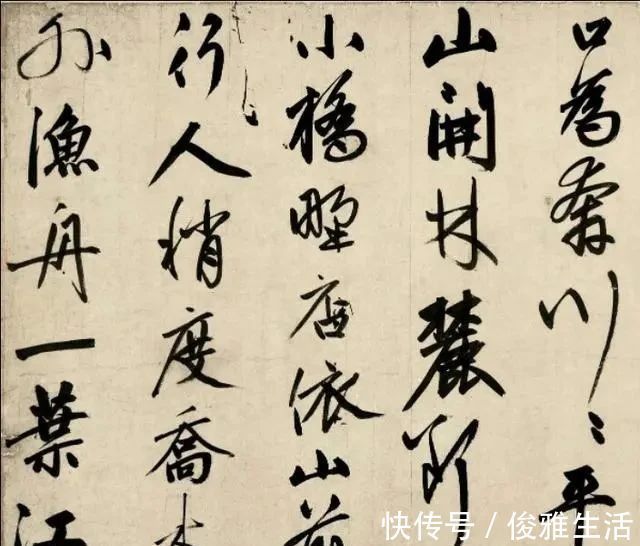 口為奔川〻平
山開林麓斷
小橋野店依山前
行人稍度喬木
外漁舟一葉江
快传号 / 俊雅生活